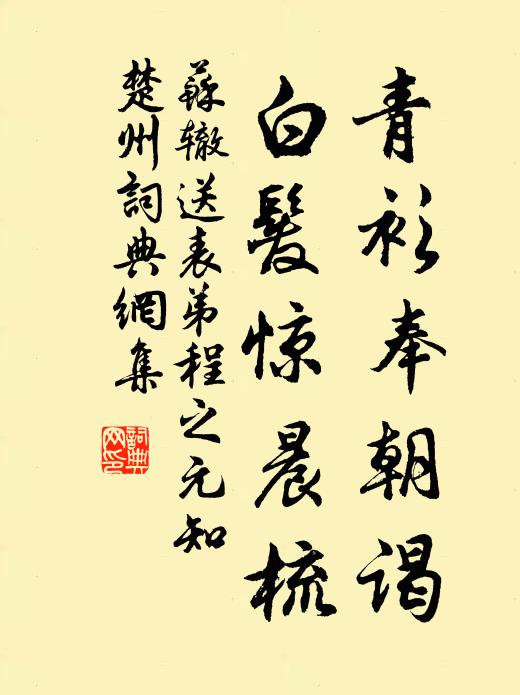 青衫奉朝谒
白髮惊晨梳
蘇辙送表弟程之元知
楚州詞典網集
詞典网印